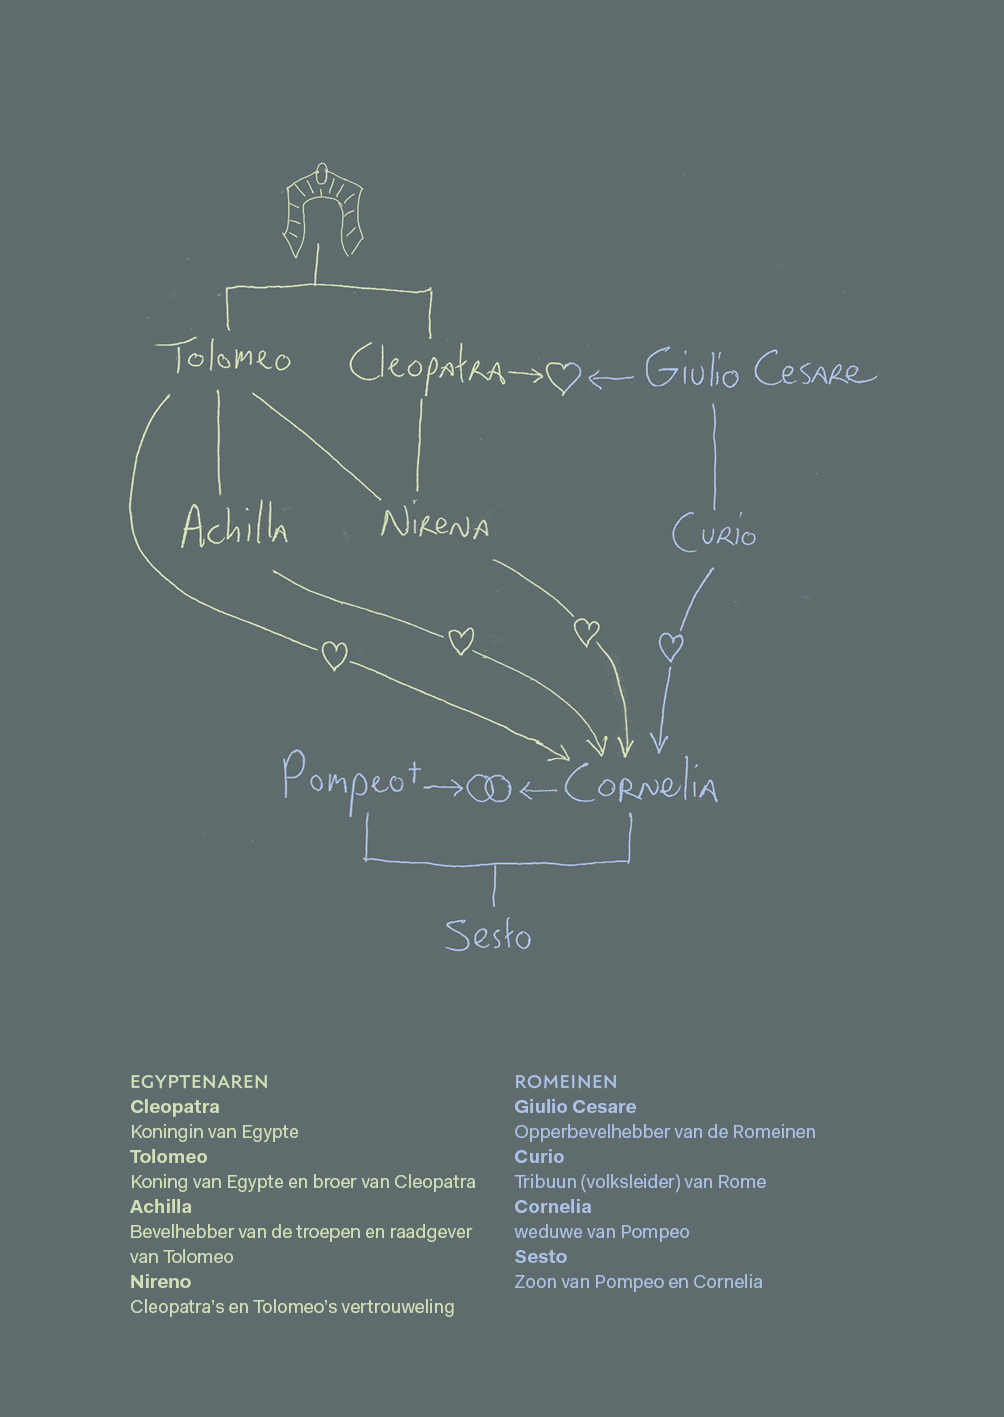 Tolomeo
Cleopatra
Giulio Cesare
Achilla
Nirena
Curio
Pompeo†
Cornelia
Sesto
EGYPTENAREN
Cleopatra
Koningin van Egypte
Tolomeo
Koning van Egypte en broer van Cleopatra
Achilla
Bevelhebber van de troepen en raadgever
van Tolomeo
Nireno
Cleopatra's en Tolomeo's vertrouweling
ROMEINEN
Giulio Cesare
Opperbevelhebber van de Romeinen
Curio
Tribuun (volksleider) van Rome
Cornelia
weduwe van Pompeo
Sesto
Zoon van Pompeo en Cornelia